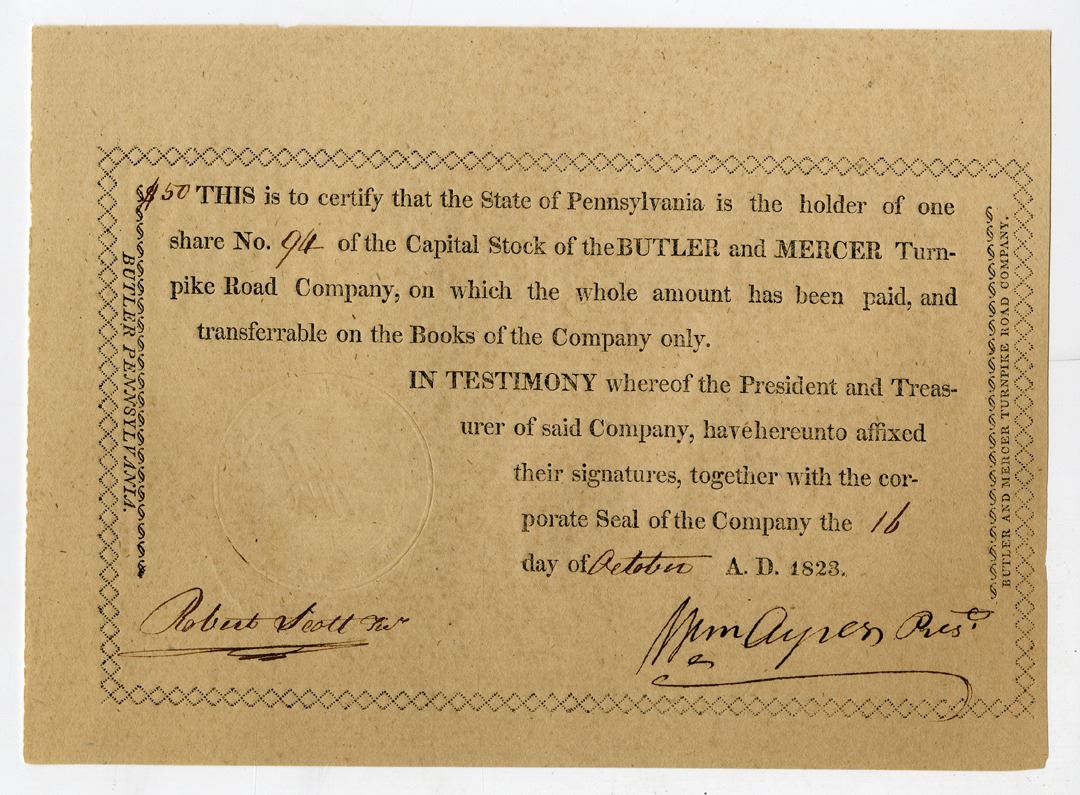 $50 THIS is to certify that the State of Pennsylvania is the holder of one
share No. 94 of the Capital Stock of the BUTLER and MERCER Turn-
pike Road Company, on which the whole amount has been paid, and
transferrable on the Books of the Company only.
IN TESTIMONY whereof the President and Treas-
urer of said Company, have hereunto affixed
their signatures, together with the cor-
porate Seal of the Company the 16
day of October A. D. 1823.
Robert Scott Tr
Wm Ayres Prest.
BUTLER PENNSYLVANIA.
BUTLER AND MERCER TURNPIKE ROAD COMPANY.